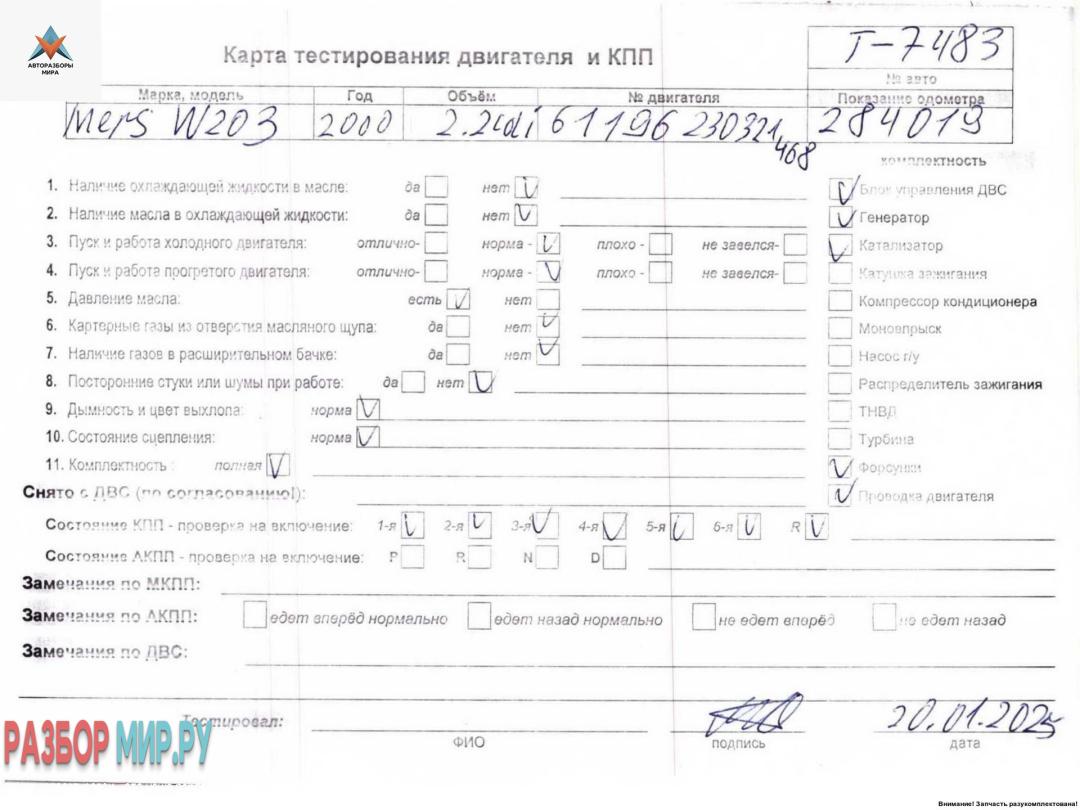 АВТОРАЗБОРЫ
МИРА
Карта тестирования двигателя и КПП
Т-7483
№ авто
Марка, модель Год Объём № двигателя Показание одометра
Mers W203 2000 2.2cdi 61196230321468 284019
комплектность
1. Наличие охлаждающей жидкости в масле: да нет
Блок управления ДВС
2. Наличие масла в охлаждающей жидкости: да нет
Генератор
3. Пуск и работа холодного двигателя: отлично- норма - плохо - не завелся-
Катализатор
4. Пуск и работа прогретого двигателя: отлично- норма - плохо - не завелся-
Катушка зажигания
5. Давление масла: есть нет
Компрессор кондиционера
6. Картерные газы из отверстия масляного щупа: да нет
Моновпрыск
7. Наличие газов в расширительном бачке: да нет
Насос г/у
8. Посторонние стуки или шумы при работе: да нет
Распределитель зажигания
9. Дымность и цвет выхлопа: норма
ТНВД
10. Состояние сцепления: норма
Турбина
11. Комплектность : полная
Форсунки
Снято с ДВС (по согласованию!):
Проводка двигателя
Состояние КПП - проверка на включение: 1-я 2-я 3-я 4-я 5-я 6-я R
Состояние АКПП - проверка на включение: P R N D
Замечания по МКПП:
Замечания по АКПП: едет вперёд нормально едет назад нормально не едет вперёд не едет назад
Замечания по ДВС:
Тестировал:
20.01.2025
ФИО подпись дата
РАЗБОР МИР.РУ
Внимание! Запчасть разукомплектована!